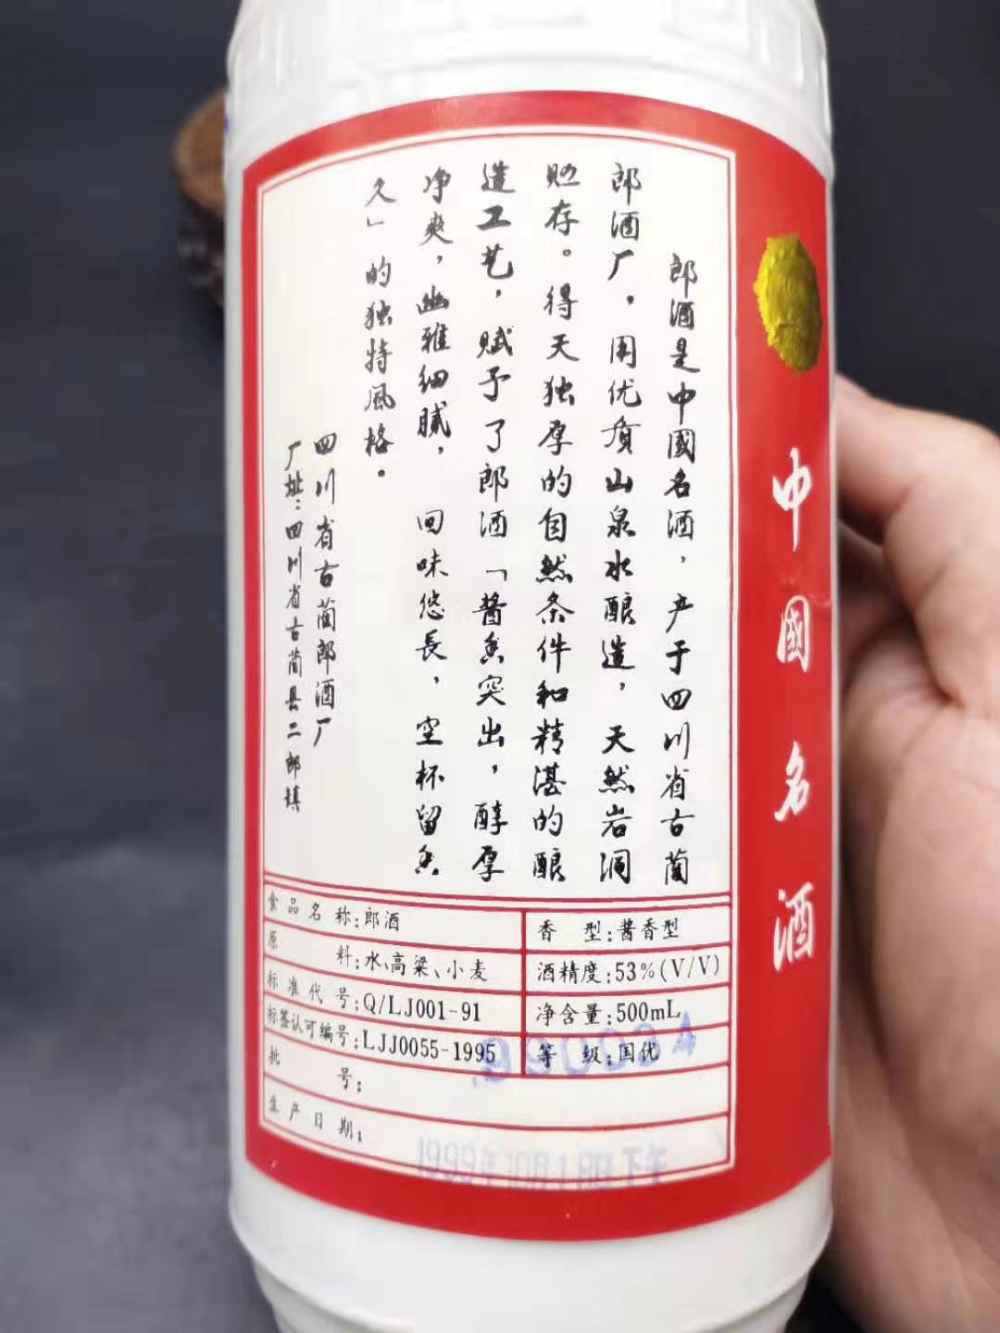 中國名酒
郎酒是中國名酒，产于四川省古蔺
郎酒厂，用优质山泉水酿造，天然岩洞
贮存。得天独厚的自然条件和精湛的酿
造工艺，赋予了郎酒「酱香突出，醇厚
净爽，幽雅细腻，回味悠長，空杯留香
久」的独特風格。
四川省古蔺郎酒厂
厂址：四川省古蔺县二郎镇
食品名称：郎酒
香型：酱香型
原料：水、高粱、小麦
酒精度：53%(V/V)
标准代号：Q/LJ001-91
净含量：500mL
标签认可编号：LJJ0055-1995
等级：国优
批号：
生产日期：